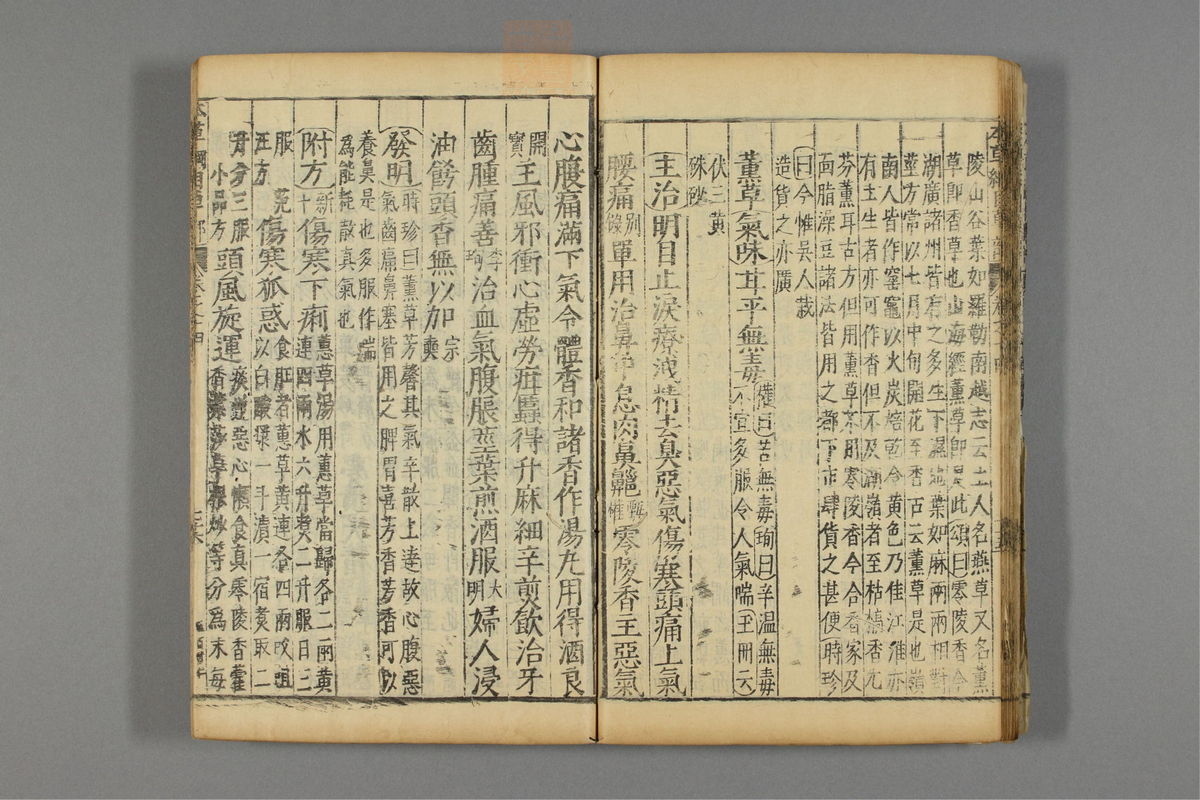 陵山谷葉如羅勒南越志云土人名燕草又名薰
草卽香草也山海經薰草卽是此頌曰零陵香今
湖廣諸州皆有之多生下濕地葉如麻兩兩相對
莖方常以七月中旬開花至香古云薰草是也嶺
南人皆作窑竈以火炭焙乾令黃色乃佳江淮亦
有土生者亦可作香但不及湖嶺者至枯槁香尤
芬薰耳古方但用薰草不用零陵香今合香家及
面脂澡豆諸法皆用之都下市肆貨之甚便時珍
曰今惟吳人栽
造貨之亦廣
薰草氣味甘平無毒權曰苦無毒珣曰辛温無毒
不宜多服令人氣喘玉冊云
伏三黃
硃砂
主治明目止淚療洩精去臭惡氣傷寒頭痛上氣
腰痛別錄單用治鼻中息肉鼻齆甄權零陵香主惡氣
心腹痛滿下氣令體香和諸香作湯丸用得酒良
開寶主風邪衝心虛勞疳䘌得升麻細辛煎飲治牙
齒腫痛善李珣治血氣腹脹莖葉煎酒服大明婦人浸
油飾頭香無以加宗奭
發明時珍曰薰草芳馨其氣辛散上達故心腹惡
氣齒痛鼻塞皆用之脾胃喜芳香芳香可以
養鼻是也多服作喘
為能耗散真氣也
附方新十傷寒下痢蕙草湯用蕙草當歸各二兩黃
連四兩水六升煮二升服日三
服
五方 范傷寒狐惑食肛者蕙草黃連各四兩㕮咀
以白酸漿一斗漬一宿煮取二
升分三服
小品方頭風旋運痰逆惡心懶食真零陵香藿
香莎草根炒等分為末每